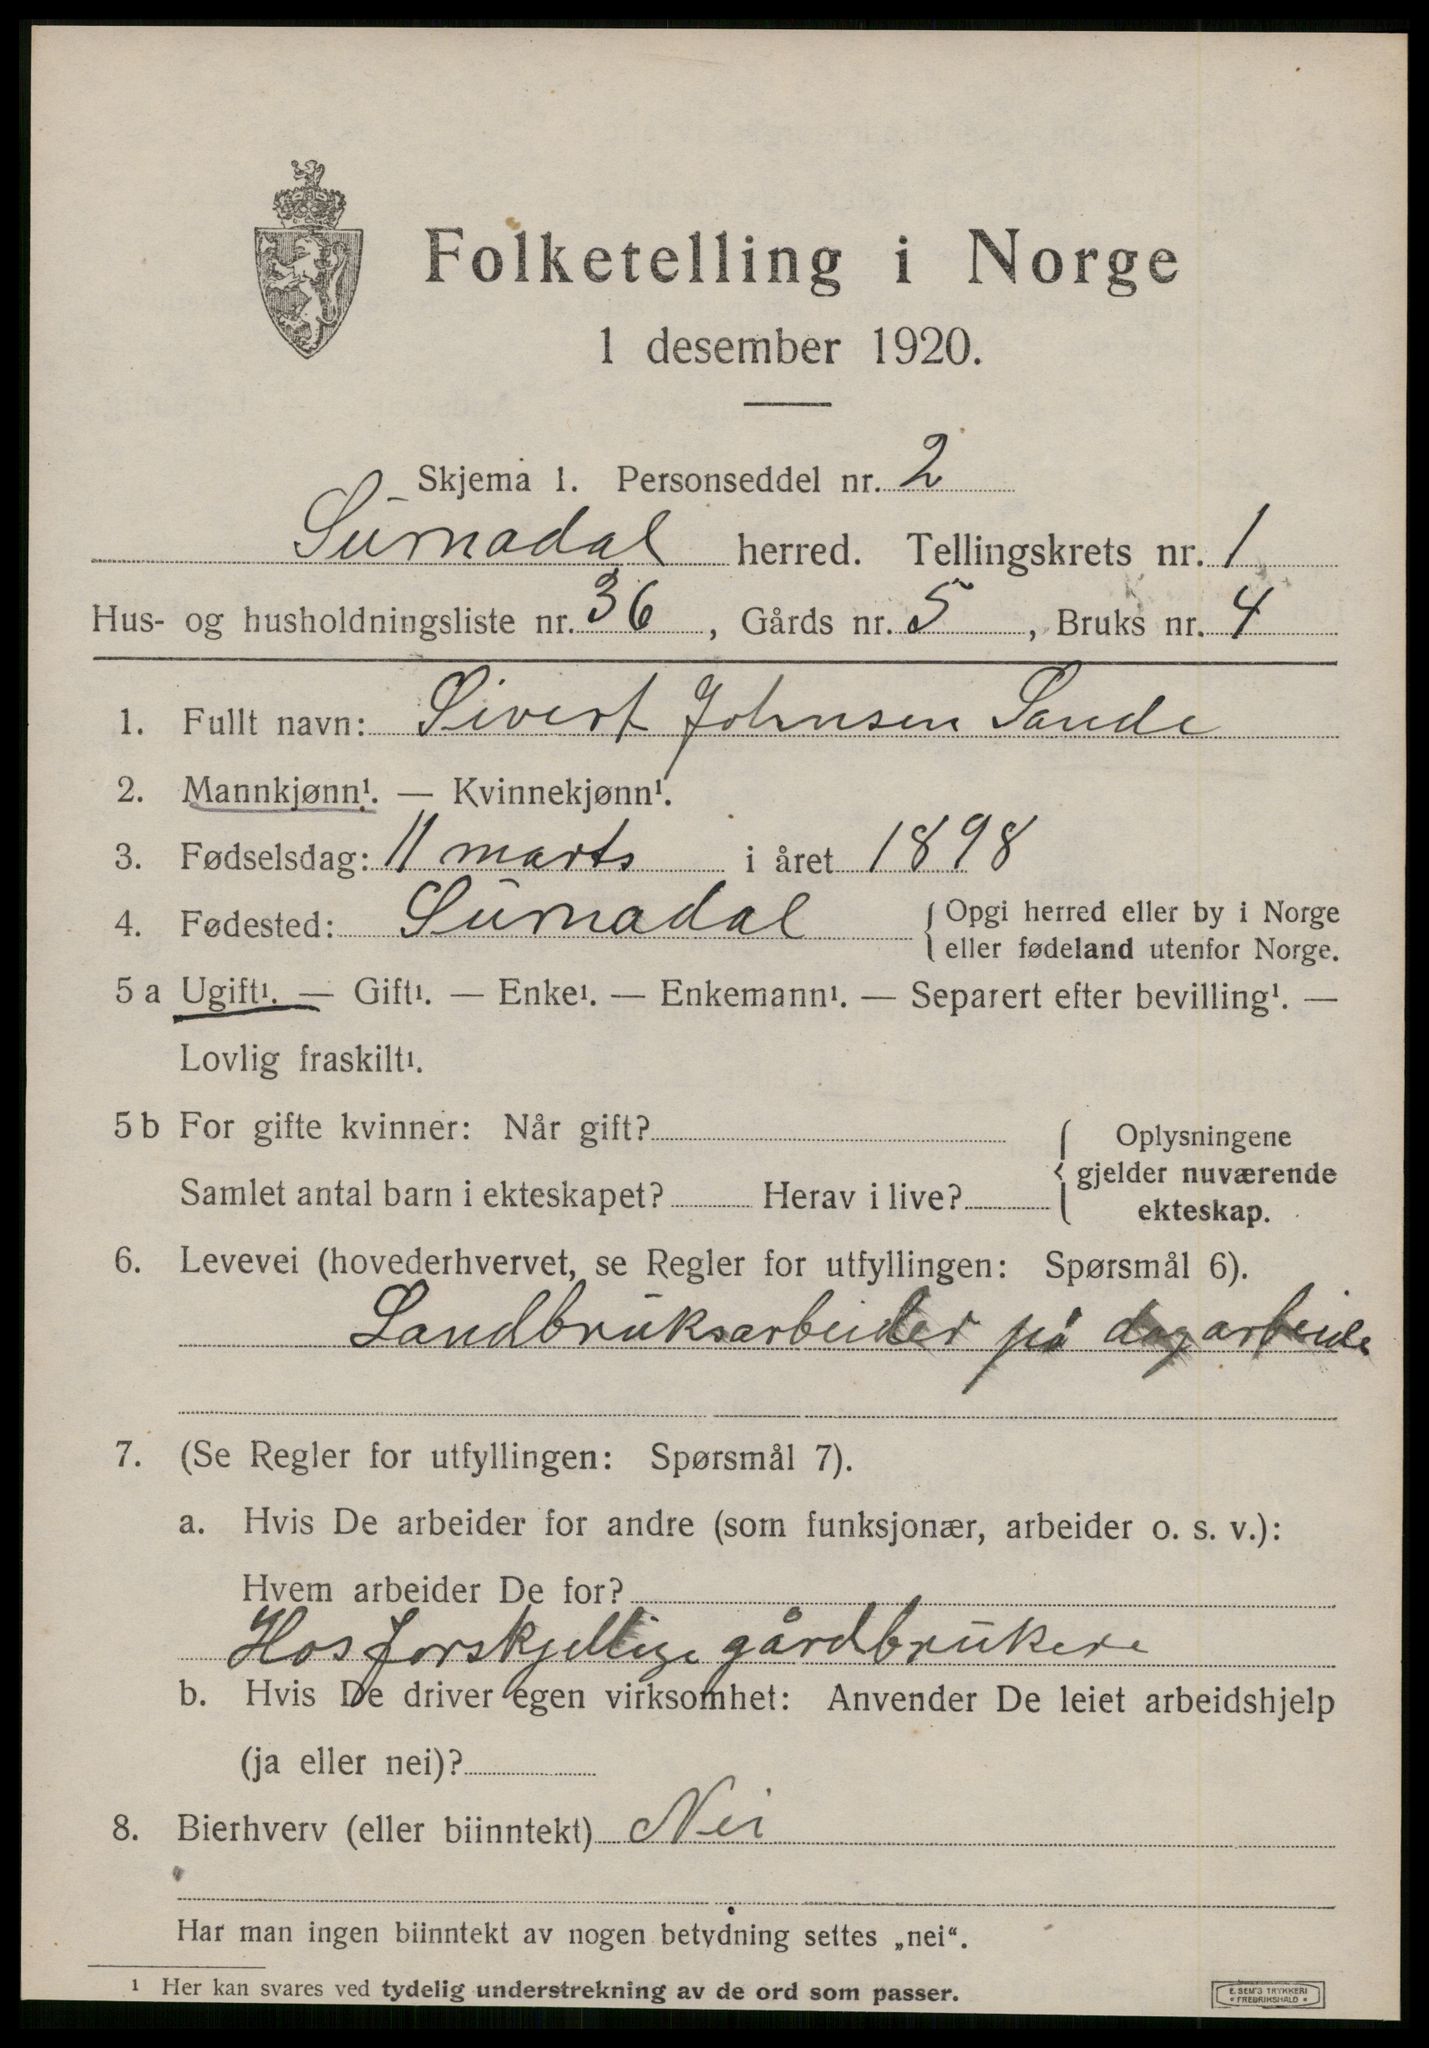 Folketelling i Norge
1 desember 1920.
Skjema 1. Personseddel nr. 2
Surnadal herred. Tellingskrets nr. 1
Hus- og husholdningsliste nr. 36, Gårds nr. 5, Bruks nr. 4
1. Fullt navn: Sivert Johnsen Sande
2. Mannkjønn¹. — Kvinnekjønn¹.
3. Fødselsdag: 11 marts i året 1898
4. Fødested: Surnadal { Opgi herred eller by i Norge
eller fødeland utenfor Norge.
5 a Ugift¹. — Gift¹. — Enke¹. — Enkemann¹. — Separert efter bevilling¹. —
Lovlig fraskilt¹.
5 b For gifte kvinner: Når gift? { Oplysningene
gjelder nuværende
Samlet antal barn i ekteskapet? Herav i live?
ekteskap.
6. Levevei (hovederhvervet, se Regler for utfyllingen: Spørsmål 6).
Landbruksarbeider på dagarbeide
7. (Se Regler for utfyllingen: Spørsmål 7).
a. Hvis De arbeider for andre (som funksjonær, arbeider o. s. v.):
Hvem arbeider De for?
Hos forskjellige gårdbrukere
b. Hvis De driver egen virksomhet: Anvender De leiet arbeidshjelp
(ja eller nei)?
8. Bierhverv (eller biinntekt) Nei
Har man ingen biinntekt av nogen betydning settes „nei“.
¹ Her kan svares ved tydelig understrekning av de ord som passer.
E. SEM'S TRYKKERI
FREDRIKSHALD